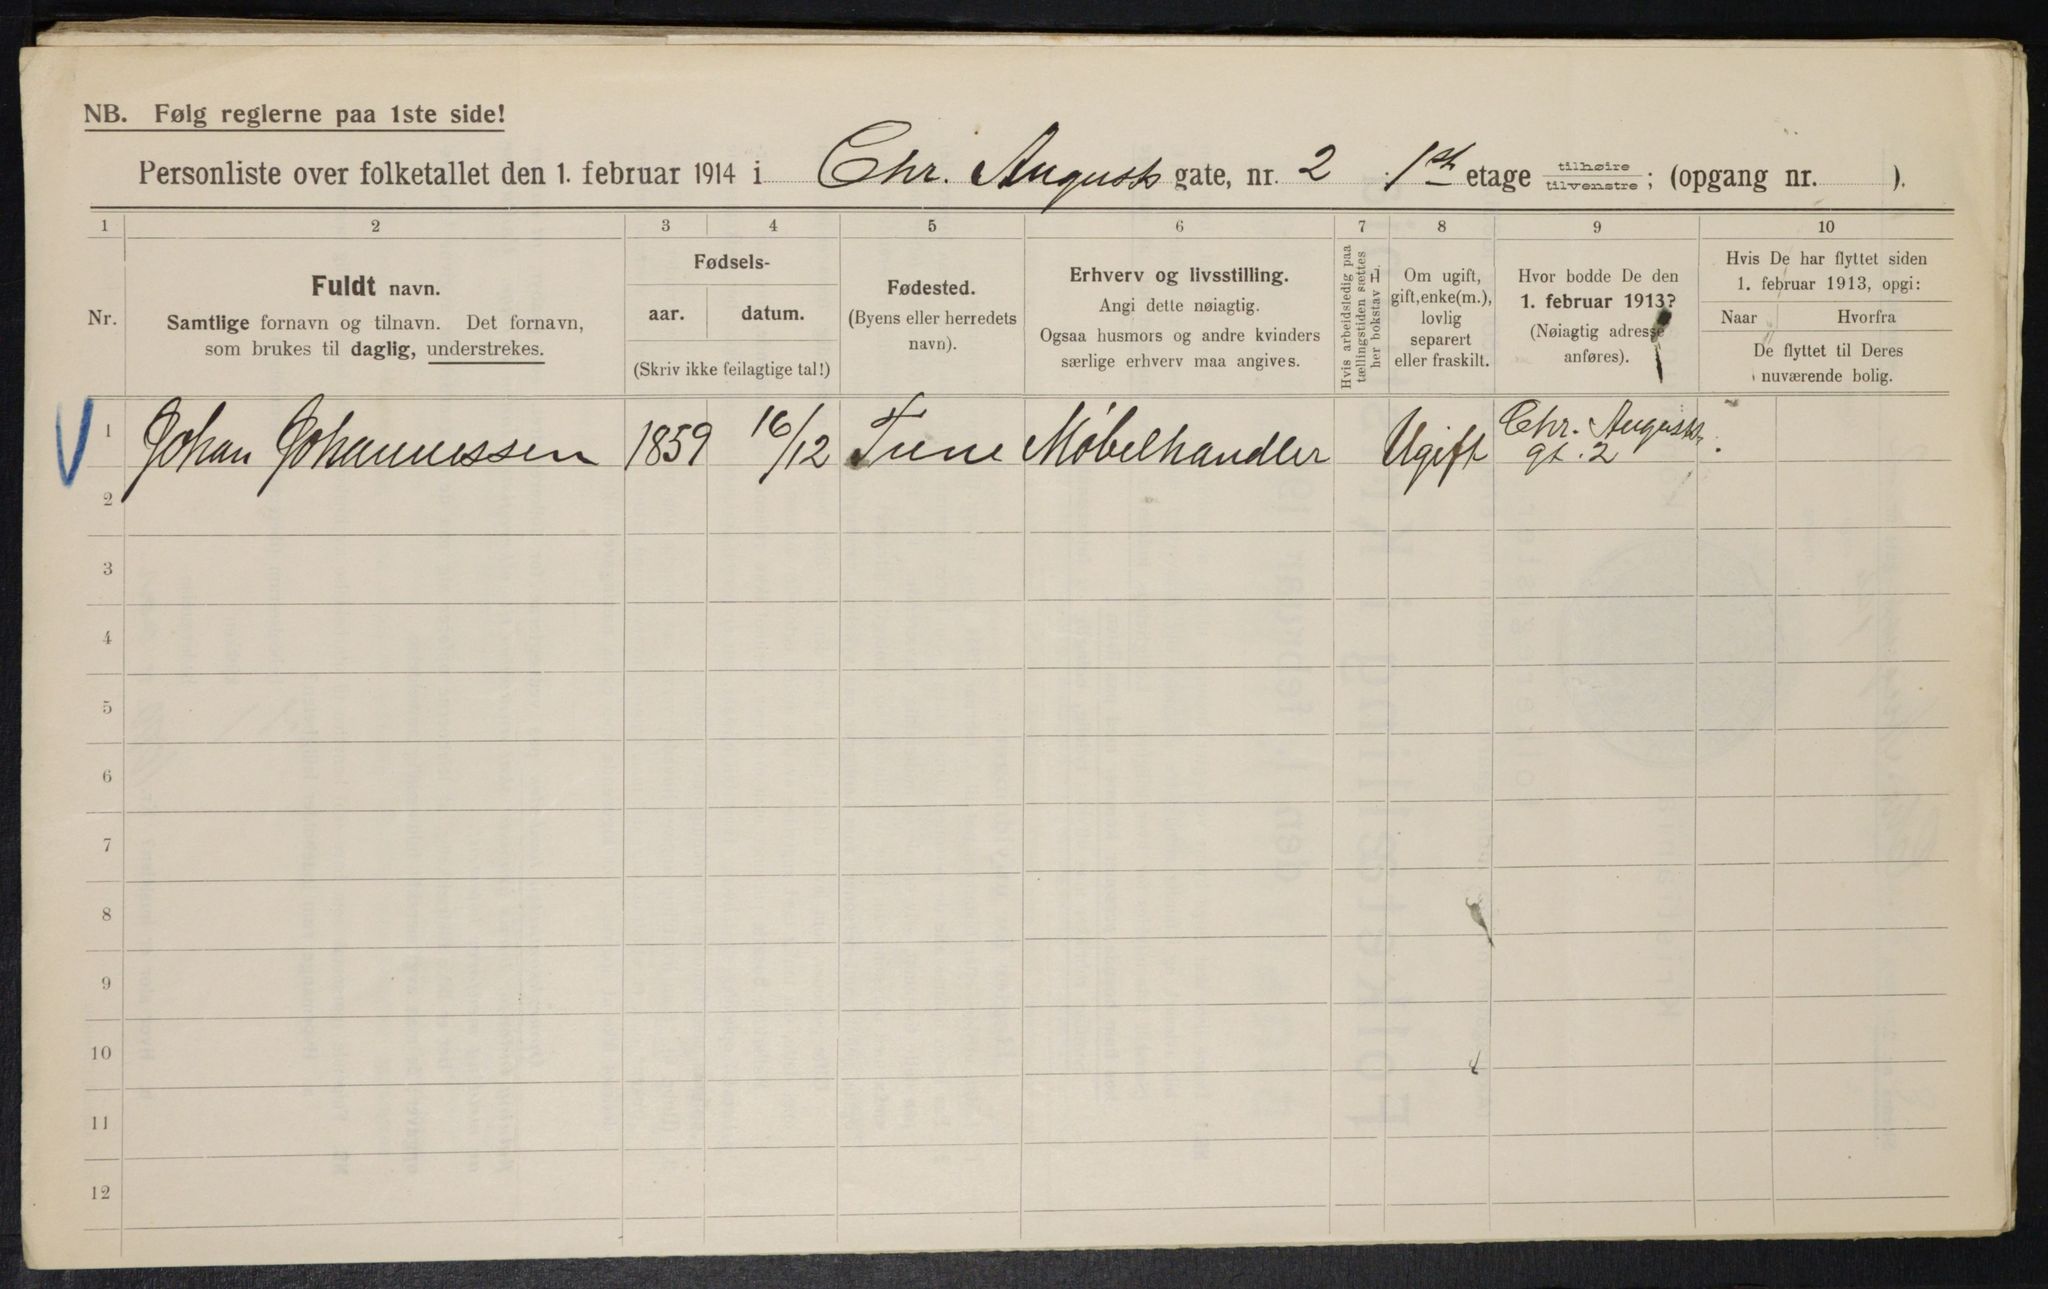 NB. Følg reglerne paa 1ste side!
Personliste over folketallet den 1. februar 1914 i Chr. Augusts gate, nr. 2 1ste etage tilhøire tilvenstre; (opgang nr. ).
1 2 3 4 5 6 7 8 9 10
Nr.
Fuldt navn.
Samtlige fornavn og tilnavn. Det fornavn,
som brukes til daglig, understrekes.
Fødsels-
aar. datum.
(Skriv ikke feilagtige tal!)
Fødested.
(Byens eller herredets
navn).
Erhverv og livsstilling.
Angi dette nøiagtig.
Ogsaa husmors og andre kvinders
særlige erhverv maa angives.
Hvis arbeidsledig paa
tællingstiden sættes
her bokstav L.
Om ugift,
gift, enke(m.),
lovlig
separert
eller fraskilt.
Hvor bodde De den
1. februar 1913?
(Nøiagtig adresse
anføres).
Hvis De har flyttet siden
1. februar 1913, opgi:
Naar Hvorfra
De flyttet til Deres
nuværende bolig.
1 Johan Johannessen 1859 16/12 Tune Møbelhandler Ugift Chr. Augusts
gt. 2
2
3
4
5
6
7
8
9
10
11
12